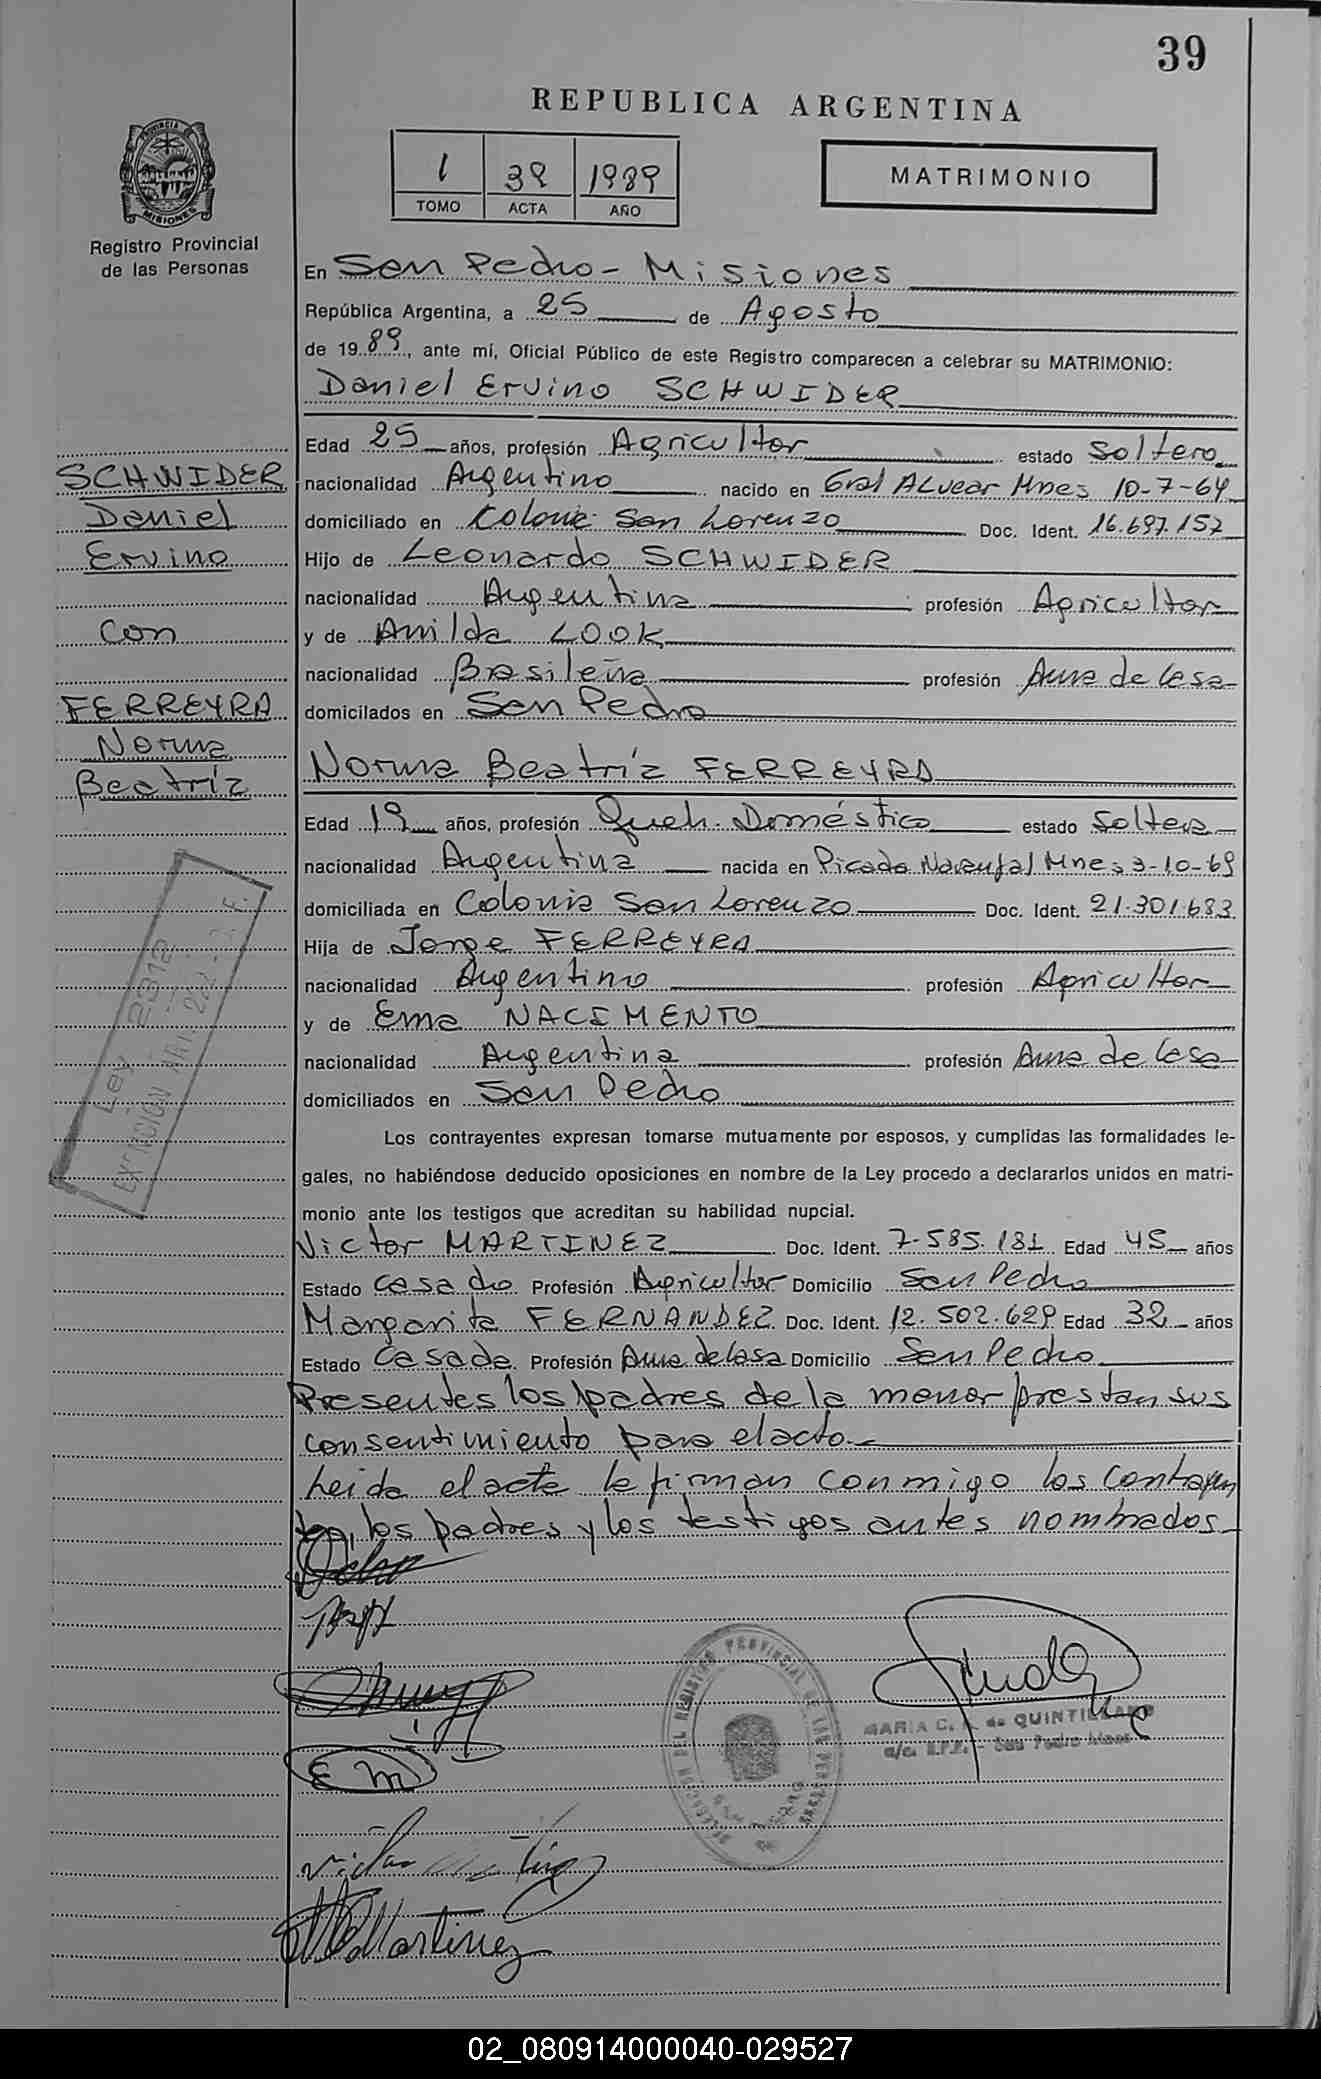 39
REPUBLICA ARGENTINA
1 39 1989
TOMO ACTA AÑO
MATRIMONIO
PROVINCIA DE
MISIONES
Registro Provincial
de las Personas
En San Pedro - Misiones
República Argentina, a 25 de Agosto
de 1989, ante mí, Oficial Público de este Registro comparecen a celebrar su MATRIMONIO:
Daniel Ervino SCHWIDER
Edad 25 años, profesión Agricultor estado Soltero
nacionalidad Argentino nacido en Gral ALvear Mnes 10-7-64
domiciliado en Colonia San Lorenzo Doc. Ident. 16.697.157
Hijo de Leonardo SCHWIDER
nacionalidad Argentina profesión Agricultor
y de Anilda LOOK
nacionalidad Brasileña profesión Ama de Casa
domicilados en San Pedro
SCHWIDER
Daniel
Ervino
con
FERREYRA
Norma
Beatríz
Norma Beatríz FERREYRA
Edad 19 años, profesión Queh. Doméstico estado Soltera
nacionalidad Argentina nacida en Picada Naranjal Mnes 3-10-69
domiciliada en Colonia San Lorenzo Doc. Ident. 21.301.683
Hija de Jorge FERREYRA
nacionalidad Argentino profesión Agricultor
y de Ema NACIMENTO
nacionalidad Argentina profesión Ama de Casa
domiciliados en San Pedro
Ley 2312
EXENCION ART. 222 - F.
Los contrayentes expresan tomarse mutuamente por esposos, y cumplidas las formalidades le-
gales, no habiéndose deducido oposiciones en nombre de la Ley procedo a declararlos unidos en matri-
monio ante los testigos que acreditan su habilidad nupcial.
Victor MARTINEZ Doc. Ident. 7.585.181 Edad 45 años
Estado Casado Profesión Agricultor Domicilio San Pedro
Margarita FERNANDEZ Doc. Ident. 12.502.629 Edad 32 años
Estado Casada Profesión Ama de Casa Domicilio San Pedro
Presentes los padres de la menor prestan sus
consentimiento para el acto
Leida el acta la firman conmigo los contrayen
tes, los padres y los testigos antes nombrados
DELEGACION DEL REGISTRO PROVINCIAL DE LAS PERSONAS
SAN PEDRO
MARIA C. de QUINTILLANO
a/c. R.P.P. - San Pedro Mnes
E m
Victor
Martinez
02_080914000040-029527